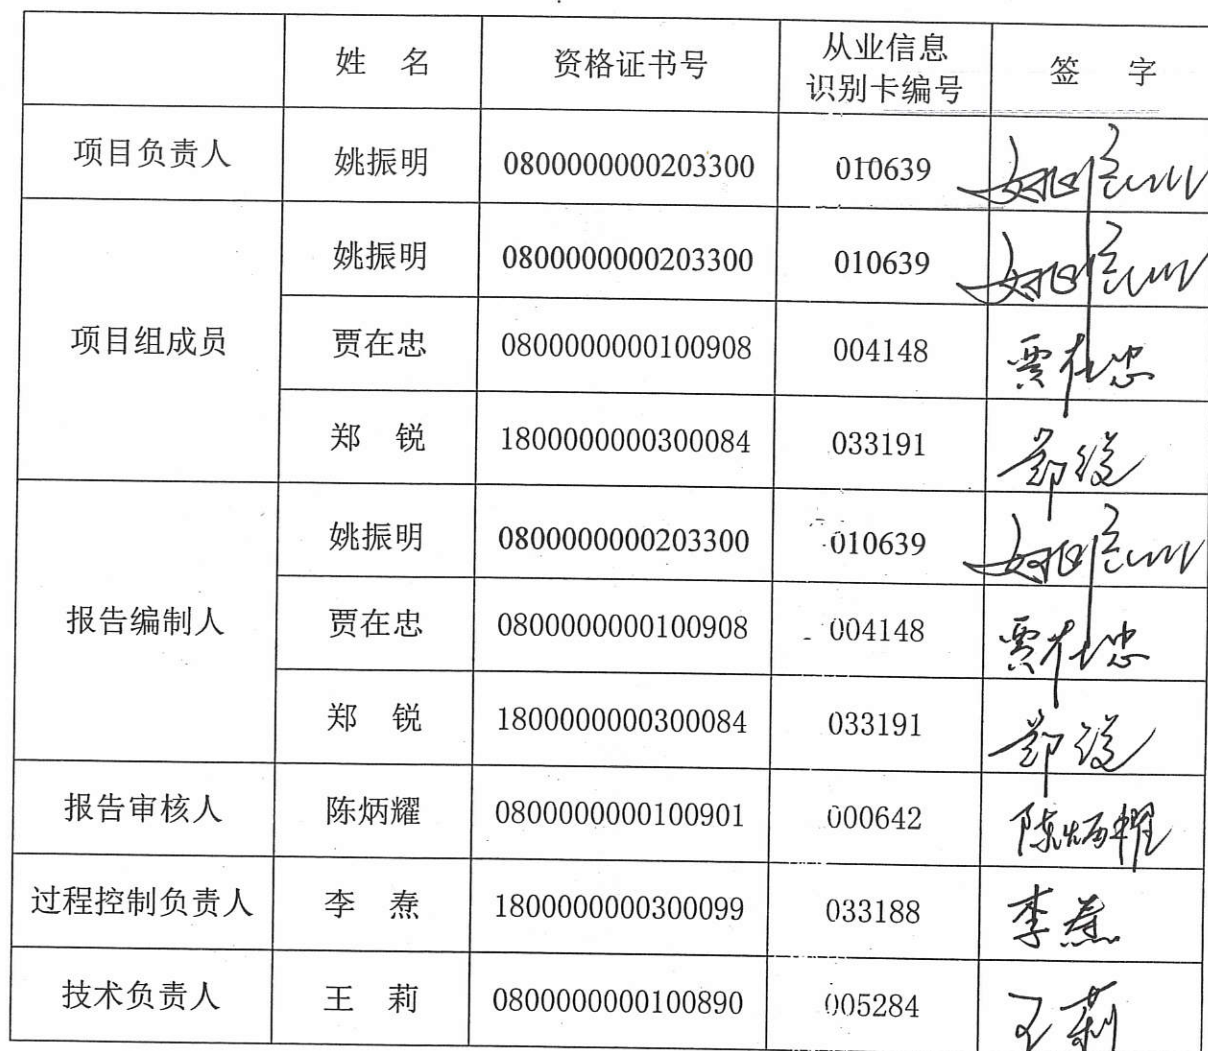 姓 名 资格证书号 从业信息识别卡编号 签 字
项目负责人 姚振明 0800000000203300 010639 姚振明
项目组成员 姚振明 0800000000203300 010639 姚振明
贾在忠 0800000000100908 004148 贾在忠
郑 锐 1800000000300084 033191 郑锐
报告编制人 姚振明 0800000000203300 010639 姚振明
贾在忠 0800000000100908 004148 贾在忠
郑 锐 1800000000300084 033191 郑锐
报告审核人 陈炳耀 0800000000100901 000642 陈炳耀
过程控制负责人 李 焘 1800000000300099 033188 李焘
技术负责人 王 莉 0800000000100890 005284 王莉